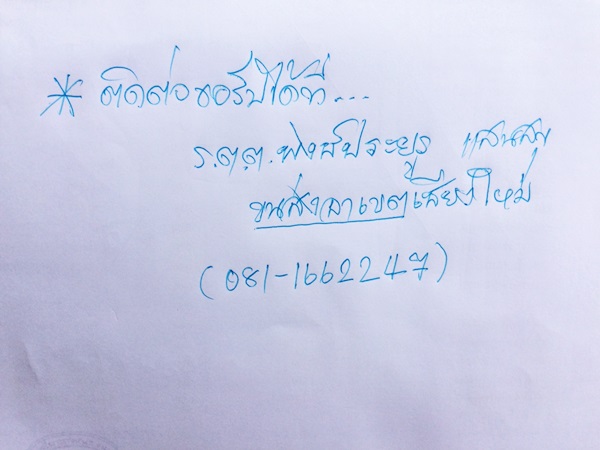 * ติดต่อขอรับได้ที่...
ร.ต.ต. พงษ์ประยูร แสนสุข
ขนส่งลาเขตเชียงใหม่
(081-1662247)